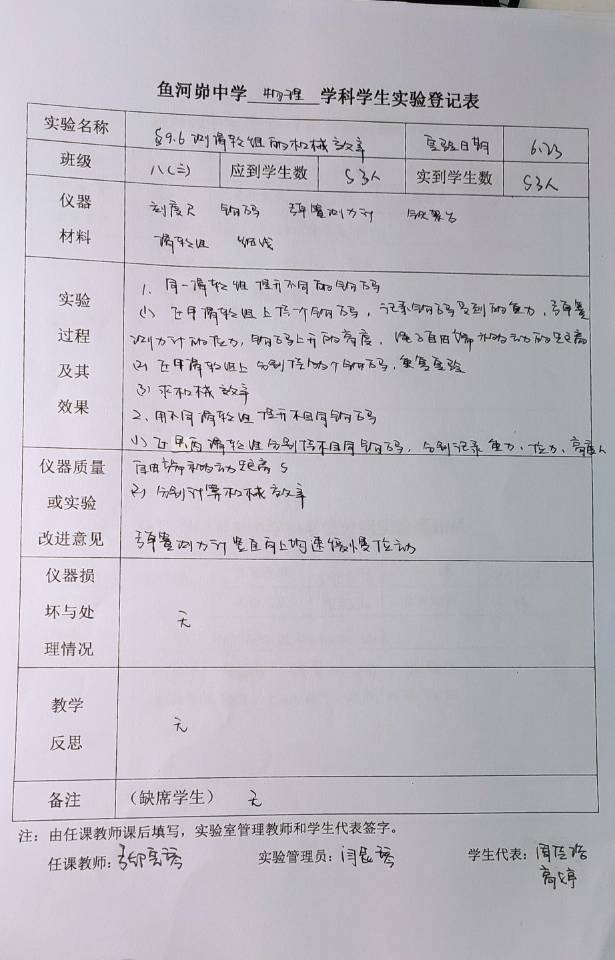 鱼河峁中学 物理 学科学生实验登记表
实验名称 §9.6 测滑轮组的机械效率 实验日期 6.23
班级 八(三) 应到学生数 53人 实到学生数 53人
仪器 刻度尺 钩码 弹簧测力计 铁架台
材料 滑轮组 细线
实验
过程
及其
效果
1、同一滑轮组提升不同的钩码
(1) 在甲滑轮组上挂一个钩码,记录钩码受到的重力,弹簧
测力计的拉力,钩码上升的高度,绳子自由端移动的距离
(2) 在甲滑轮组上分别挂 个钩码,重复实验
(3) 求机械效率
2、用不同滑轮组提升相同钩码
(1) 在 两滑轮组分别挂相同钩码,分别记录重力、拉力、高度h
自由端移动距离S
(2) 分别计算机械效率
仪器质量
或实验
改进意见
弹簧测力计竖直向上匀速缓慢拉动
仪器损
坏与处
理情况
无
教学
反思
无
备注 (缺席学生) 无
注:由任课教师课后填写,实验室管理教师和学生代表签字。
任课教师: 实验管理员: 学生代表:
高婷